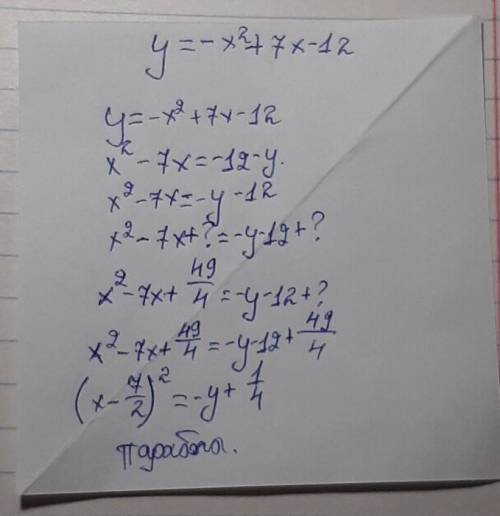 y = -x² + 7x - 12
y = -x² + 7x - 12
x² - 7x = -12 - y.
x² - 7x = -y - 12
x² - 7x + ? = -y - 12 + ?
x² - 7x + 49/4 = -y - 12 + ?
x² - 7x + 49/4 = -y - 12 + 49/4
(x - 7/2)² = -y + 1/4
параболы.